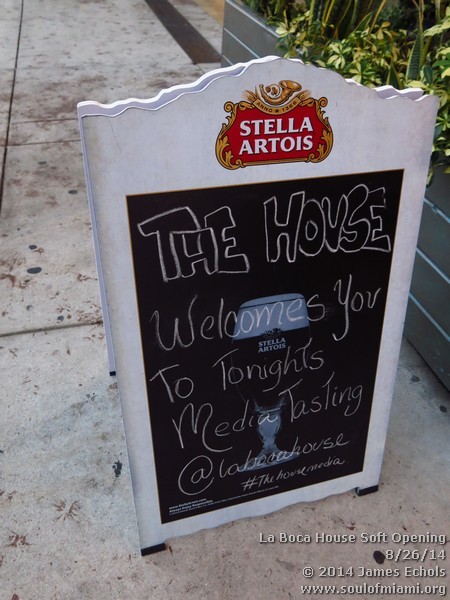 ANNO 1366
STELLA
ARTOIS
THE HOUSE
Welcomes You
STELLA
ARTOIS
To Tonights
Media Tasting
@labocahouse
#Thehousemedia
La Boca House Soft Opening
8/26/14
© 2014 James Echols
www.soulofmiami.org